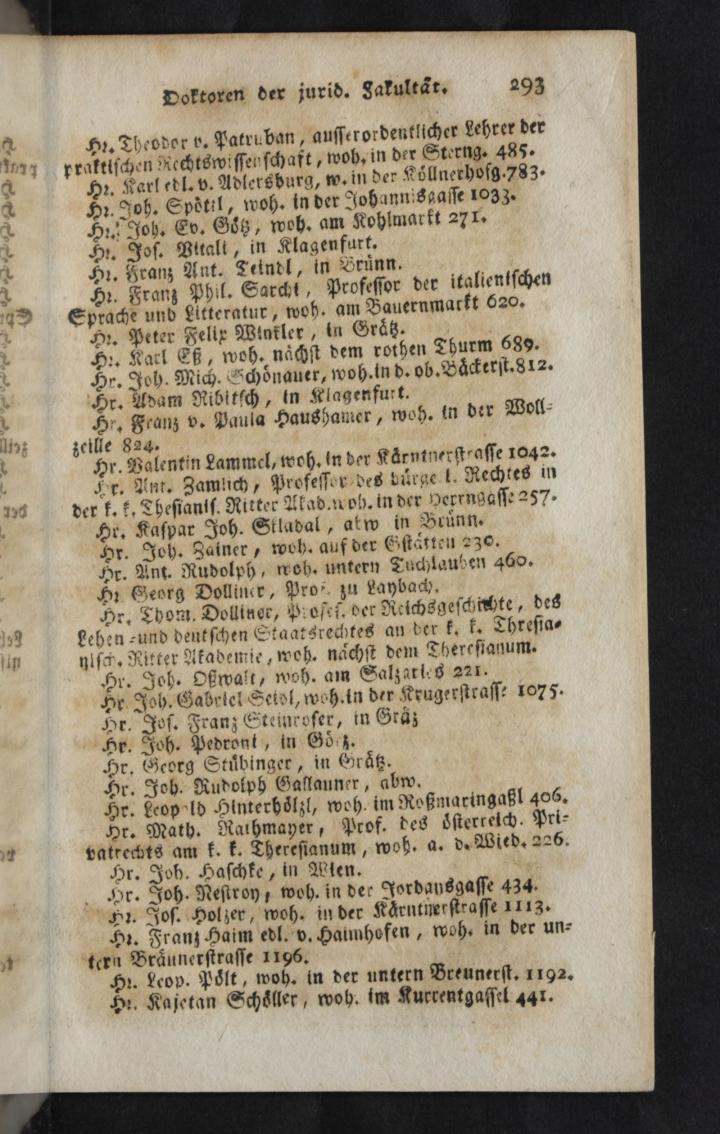 Doktoren der jurid. Fakultät. 293
Hr. Theodor v. Patruban, ausserordentlicher Lehrer der
praktischen Rechtswissenschaft, woh. in der Sterng. 485.
Hr. Karl edl. v. Adlersburg, w. in der Köllnerhofg. 783.
Hr. Joh. Spöttl, woh. in der Johannisgasse 1033.
Hr. Joh. Ev. Götz, woh. am Kohlmarkt 271.
Hr. Jos. Vitali, in Klagenfurt.
Hr. Franz Ant. Teindl, in Brünn.
Hr. Franz Phil. Sarchi, Professor der italienischen
Sprache und Litteratur, woh. am Bauernmarkt 620.
Hr. Peter Felix Winkler, in Grätz.
Hr. Karl Eß, woh. nächst dem rothen Thurm 689.
Hr. Joh. Mich. Schönauer, woh. in d. ob. Bäckerst. 812.
Hr. Adam Ribitsch, in Klagenfurt.
Hr. Franz v. Paula Haushamer, woh. in der Woll-
zeille 824.
Hr. Valentin Lammel, woh. in der Kärntnerstrasse 1042.
Hr. Ant. Zamlich, Professor des bürgerl. Rechtes in
der k. k. Thesianis. Ritter Akad. woh. in der Herrngasse 257.
Hr. Kaspar Joh. Skladal, abw in Brünn.
Hr. Joh. Zainer, woh. auf der Gstätten 230.
Hr. Ant. Rudolph, woh. untern Tuchlauben 460.
Hr. Georg Dolliner, Prof. zu Laybach.
Hr. Thom. Dolliner, Profess. der Reichsgeschichte, des
Lehen- und deutschen Staatsrechtes an der k. k. Thresia-
nisch. Ritter Akademie, woh. nächst dem Theresianum.
Hr. Joh. Oßwalt, woh. am Salzgries 221.
Hr. Joh. Gabriel Seidl, woh. in der Krugerstrasse 1075.
Hr. Jos. Franz Steinrofer, in Gräz
Hr. Joh. Pedroni, in Görz.
Hr. Georg Stübinger, in Grätz.
Hr. Joh. Rudolph Gallauner, abw.
Hr. Leopold Hinterhölzl, woh. im Roßmaringaßl 406.
Hr. Math. Rathmayer, Prof. des österreich. Pri-
vatrechts am k. k. Theresianum, woh. a. d. Wied. 226.
Hr. Joh. Haschke, in Wien.
Hr. Joh. Nestroy, woh. in der Jordansgasse 434.
Hr. Jos. Holzer, woh. in der Kärntnerstrasse 1113.
Hr. Franz Haim edl. v. Haimhofen, woh. in der un-
tern Bräunerstrasse 1196.
Hr. Leop. Pölt, woh. in der untern Breunerst. 1192.
Hr. Kajetan Schöller, woh. im Kurrentgassel 441.